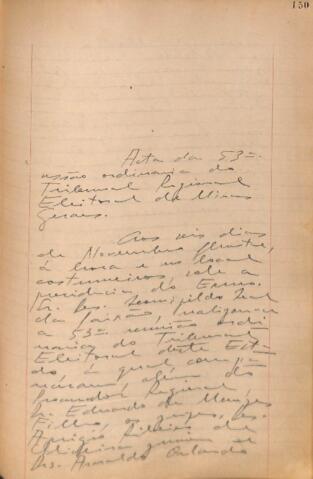 150
Acta da 53ª
sessão ordinaria do
Tribunal Regional
Eleitoral de Minas
Geraes.
Aos seis dias
de Novembro
á hora e no local
costumeiros, sob a
presidencia do Exmo.
Sr. Des. Leal
da Paixão,
a 53ª reunião ordi
naria do Tribunal
Eleitoral deste Esta
do á qual compa
receram, além do
Procurador Regional
Dr. Eduardo de Menezes
Filho, os juizes, Des.
Aprigio Ribeiro de
Oliveira e
Drs. Arnaldo Orlando